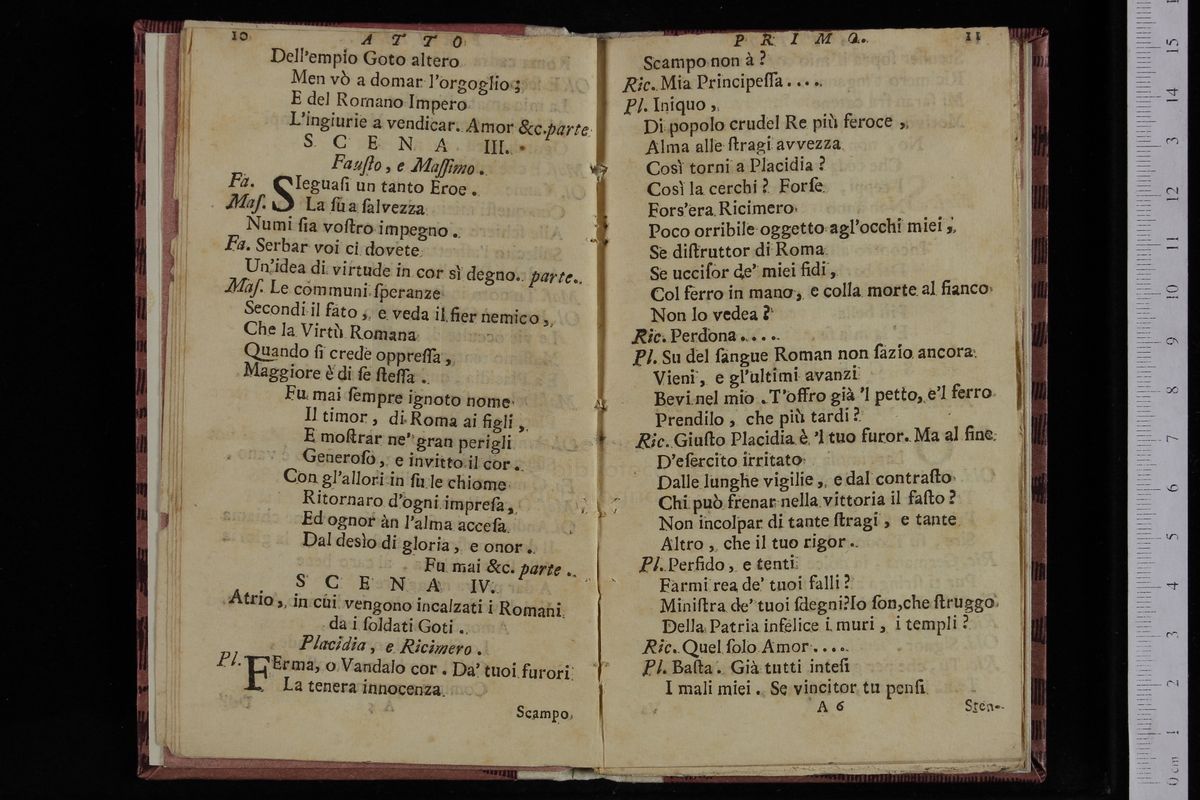 10
A T T O
Dell'empio Goto altero
Men vò a domar l'orgoglio ;
E del Romano Impero
L'ingiurie a vendicar. Amor &c. parte
S C E N A III.
Fauſto, e Maſſimo.
Fa. SIeguaſi un tanto Eroe.
Maſ. La ſua ſalvezza
Numi ſia voſtro impegno.
Fa. Serbar voi ci dovete
Un'idea di virtude in cor sì degno. parte.
Maſ. Le communi ſperanze
Secondi il fato, e veda il fier nemico,
Che la Virtù Romana
Quando ſi crede oppreſſa,
Maggiore è di ſe ſteſſa.
Fu mai ſempre ignoto nome
Il timor, di Roma ai figli,
E moſtrar ne' gran perigli
Generoſo, e invitto il cor.
Con gl'allori in ſu le chiome
Ritornaro d'ogni impreſa,
Ed ognor àn l'alma acceſa
Dal desìo di gloria, e onor.
Fu mai &c. parte.
S C E N A IV.
Atrio, in cui vengono incalzati i Romani
da i ſoldati Goti.
Placidia, e Ricimero.
Pl. FErma, o Vandalo cor. Da' tuoi furori
La tenera innocenza
Scampo
P R I M O. 11
Scampo non à ?
Ric. Mia Principeſſa....
Pl. Iniquo,
Di popolo crudel Re più feroce,
Alma alle ſtragi avvezza
Così torni a Placidia ?
Così la cerchi ? Forſe
Fors'era Ricimero
Poco orribile oggetto agl'occhi miei,
Se diſtruttor di Roma
Se ucciſor de' miei fidi,
Col ferro in mano, e colla morte al fianco
Non lo vedea ?
Ric. Perdona.....
Pl. Su del ſangue Roman non ſazio ancora
Vieni, e gl'ultimi avanzi
Bevi nel mio. T'offro già 'l petto, e'l ferro
Prendilo, che più tardi ?
Ric. Giuſto Placidia è 'l tuo furor. Ma al fine
D'eſercito irritato
Dalle lunghe vigilie, e dal contraſto
Chi può frenar nella vittoria il faſto ?
Non incolpar di tante ſtragi, e tante
Altro, che il tuo rigor.
Pl. Perfido, e tenti
Farmi rea de' tuoi falli ?
Miniſtra de' tuoi ſdegni? Io ſon, che ſtruggo
Della Patria infelice i muri, i templi ?
Ric. Quel ſolo Amor.....
Pl. Baſta. Già tutti inteſi
I mali miei. Se vincitor tu penſi
A 6 Sten-
0 cm 1 2 3 4 5 6 7 8 9 10 11 12 13 14 15